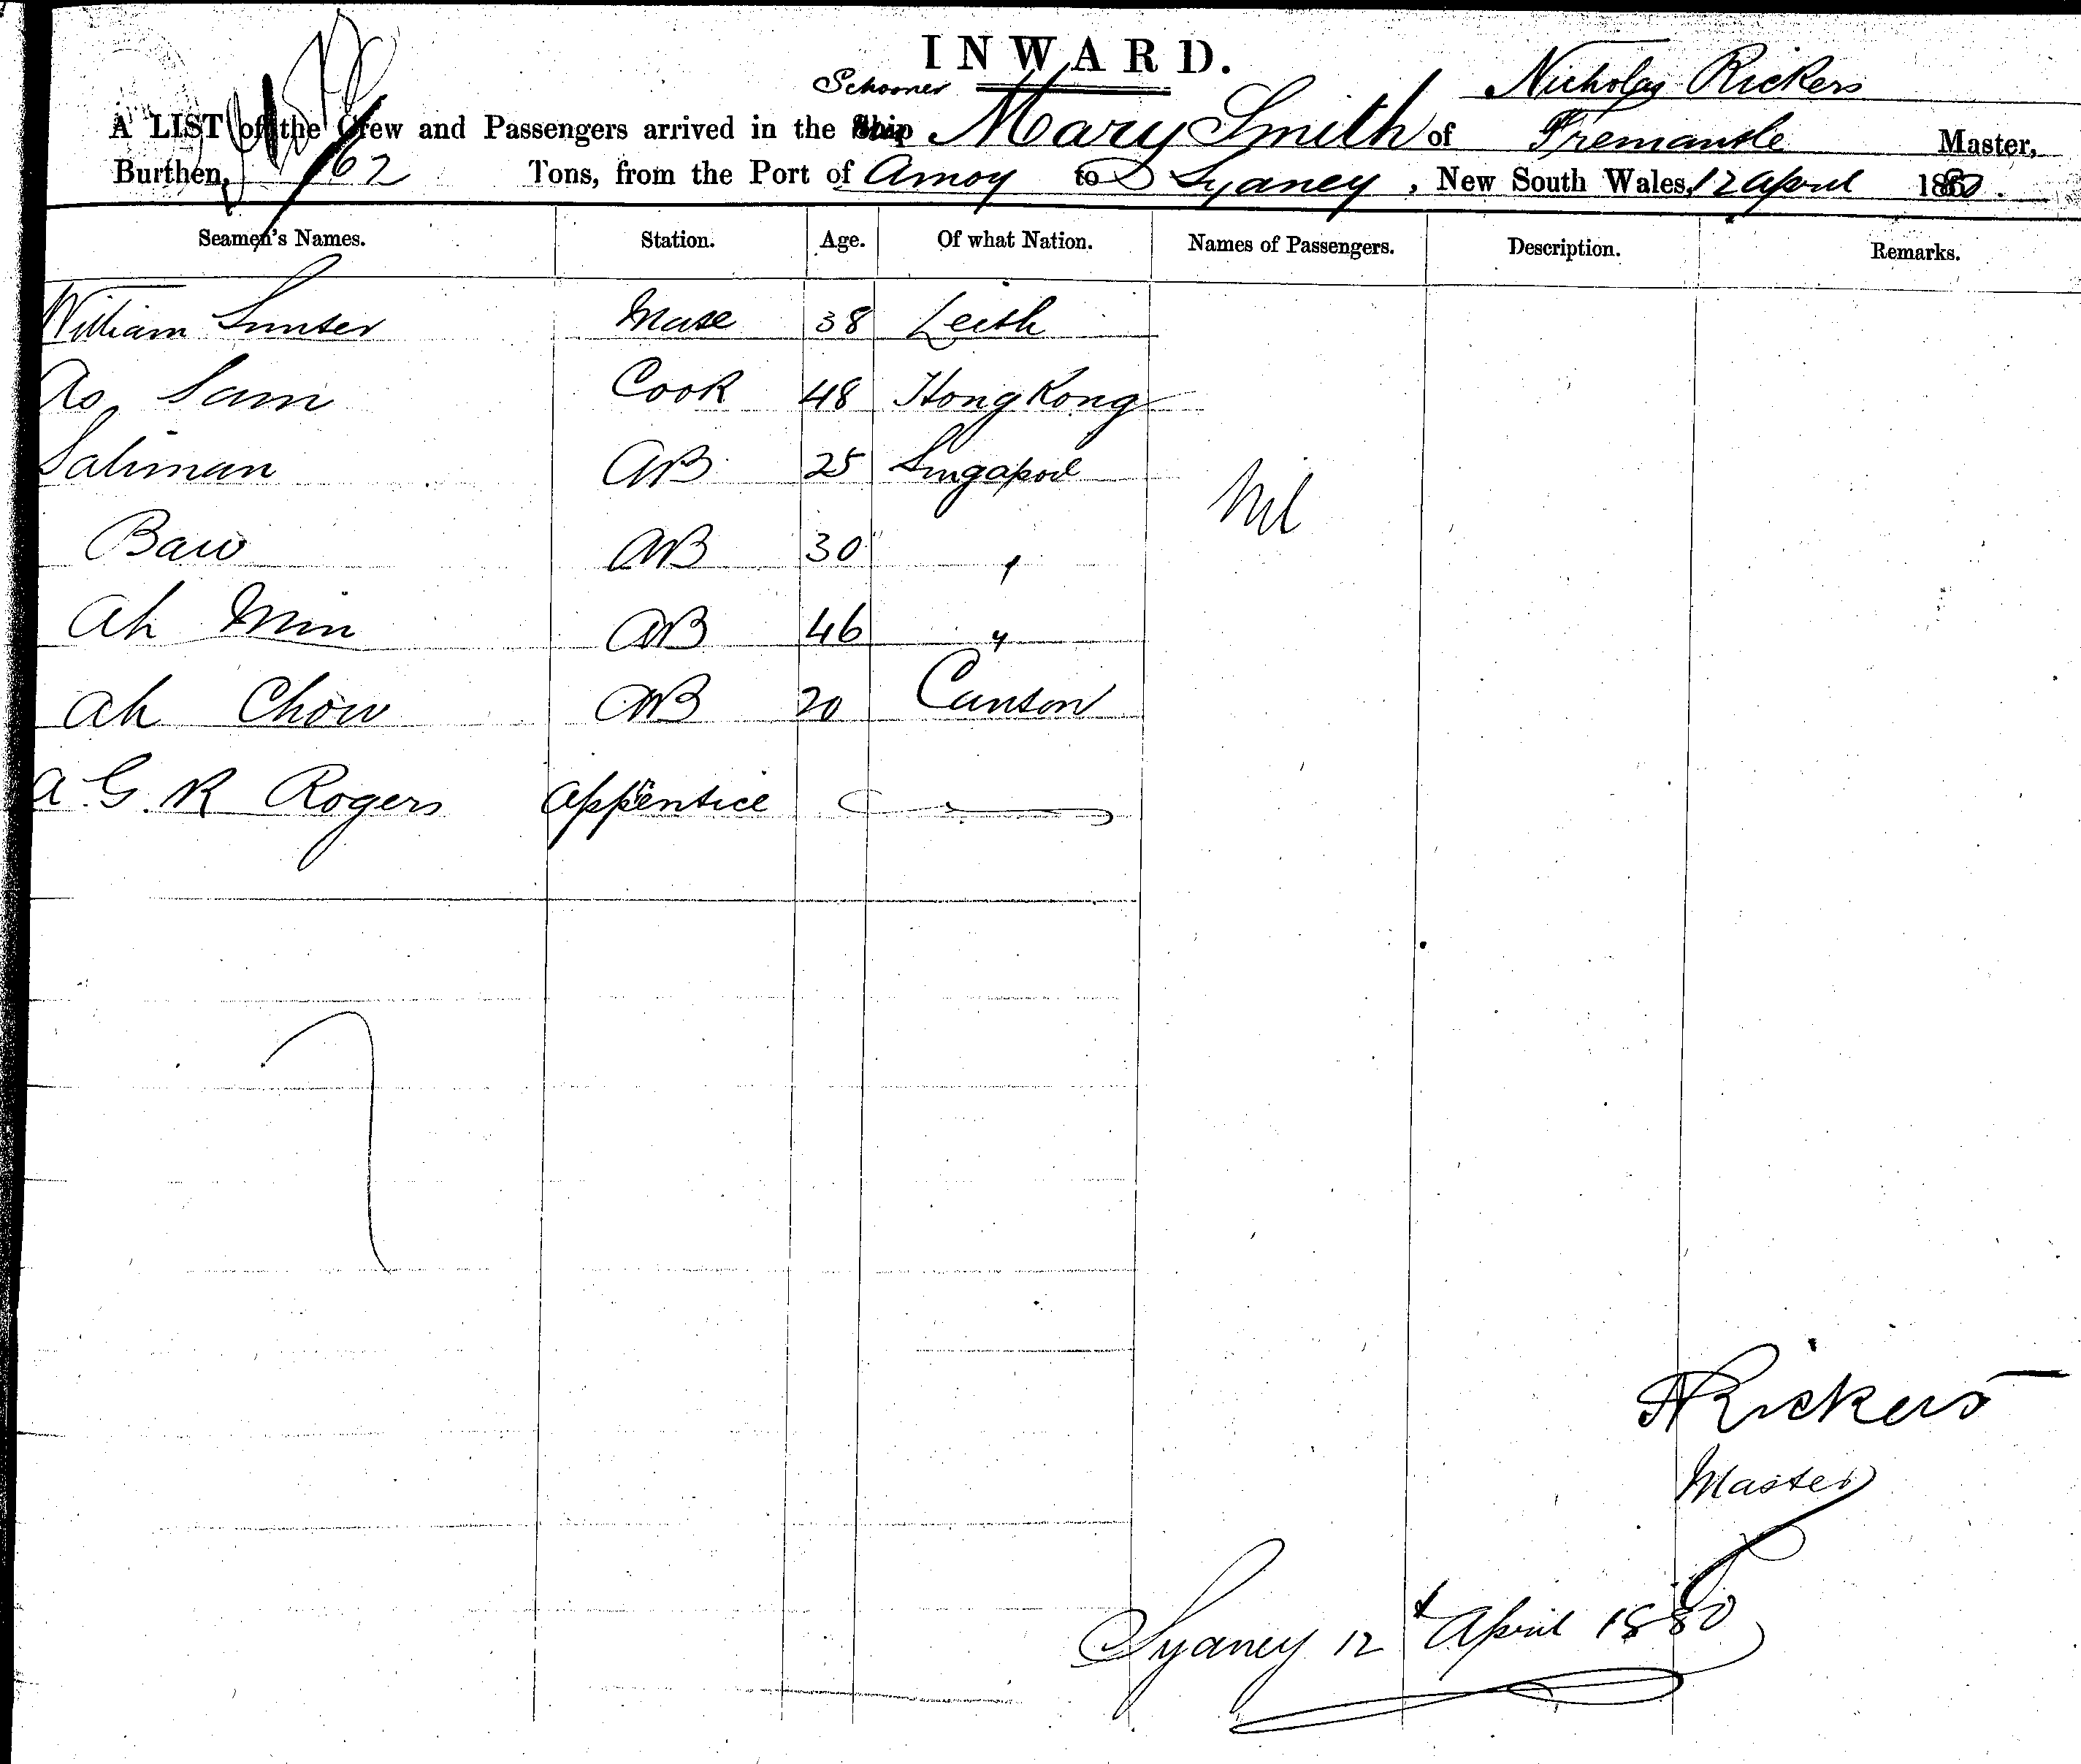 INWARD.
Schooner Nicholas Rickers
A LIST of the Crew and Passengers arrived in the Ship Mary Smith of Fremantle Master,
Burthen, 162 Tons, from the Port of Amoy to Sydney, New South Wales, 12 April 1880.
Seamen's Names. Station. Age. Of what Nation. Names of Passengers. Description. Remarks.
William Sunter Mate 38 Leith
As Sam Cook 48 Hong Kong
Saliman AB 25 Singapore
Nil
Baw AB 30 "
Ah Min AB 46 "
Ah Chow AB 20 Canton
A. G. R Rogers Apprentice
N Rickers
Master
Sydney 12th April 1880